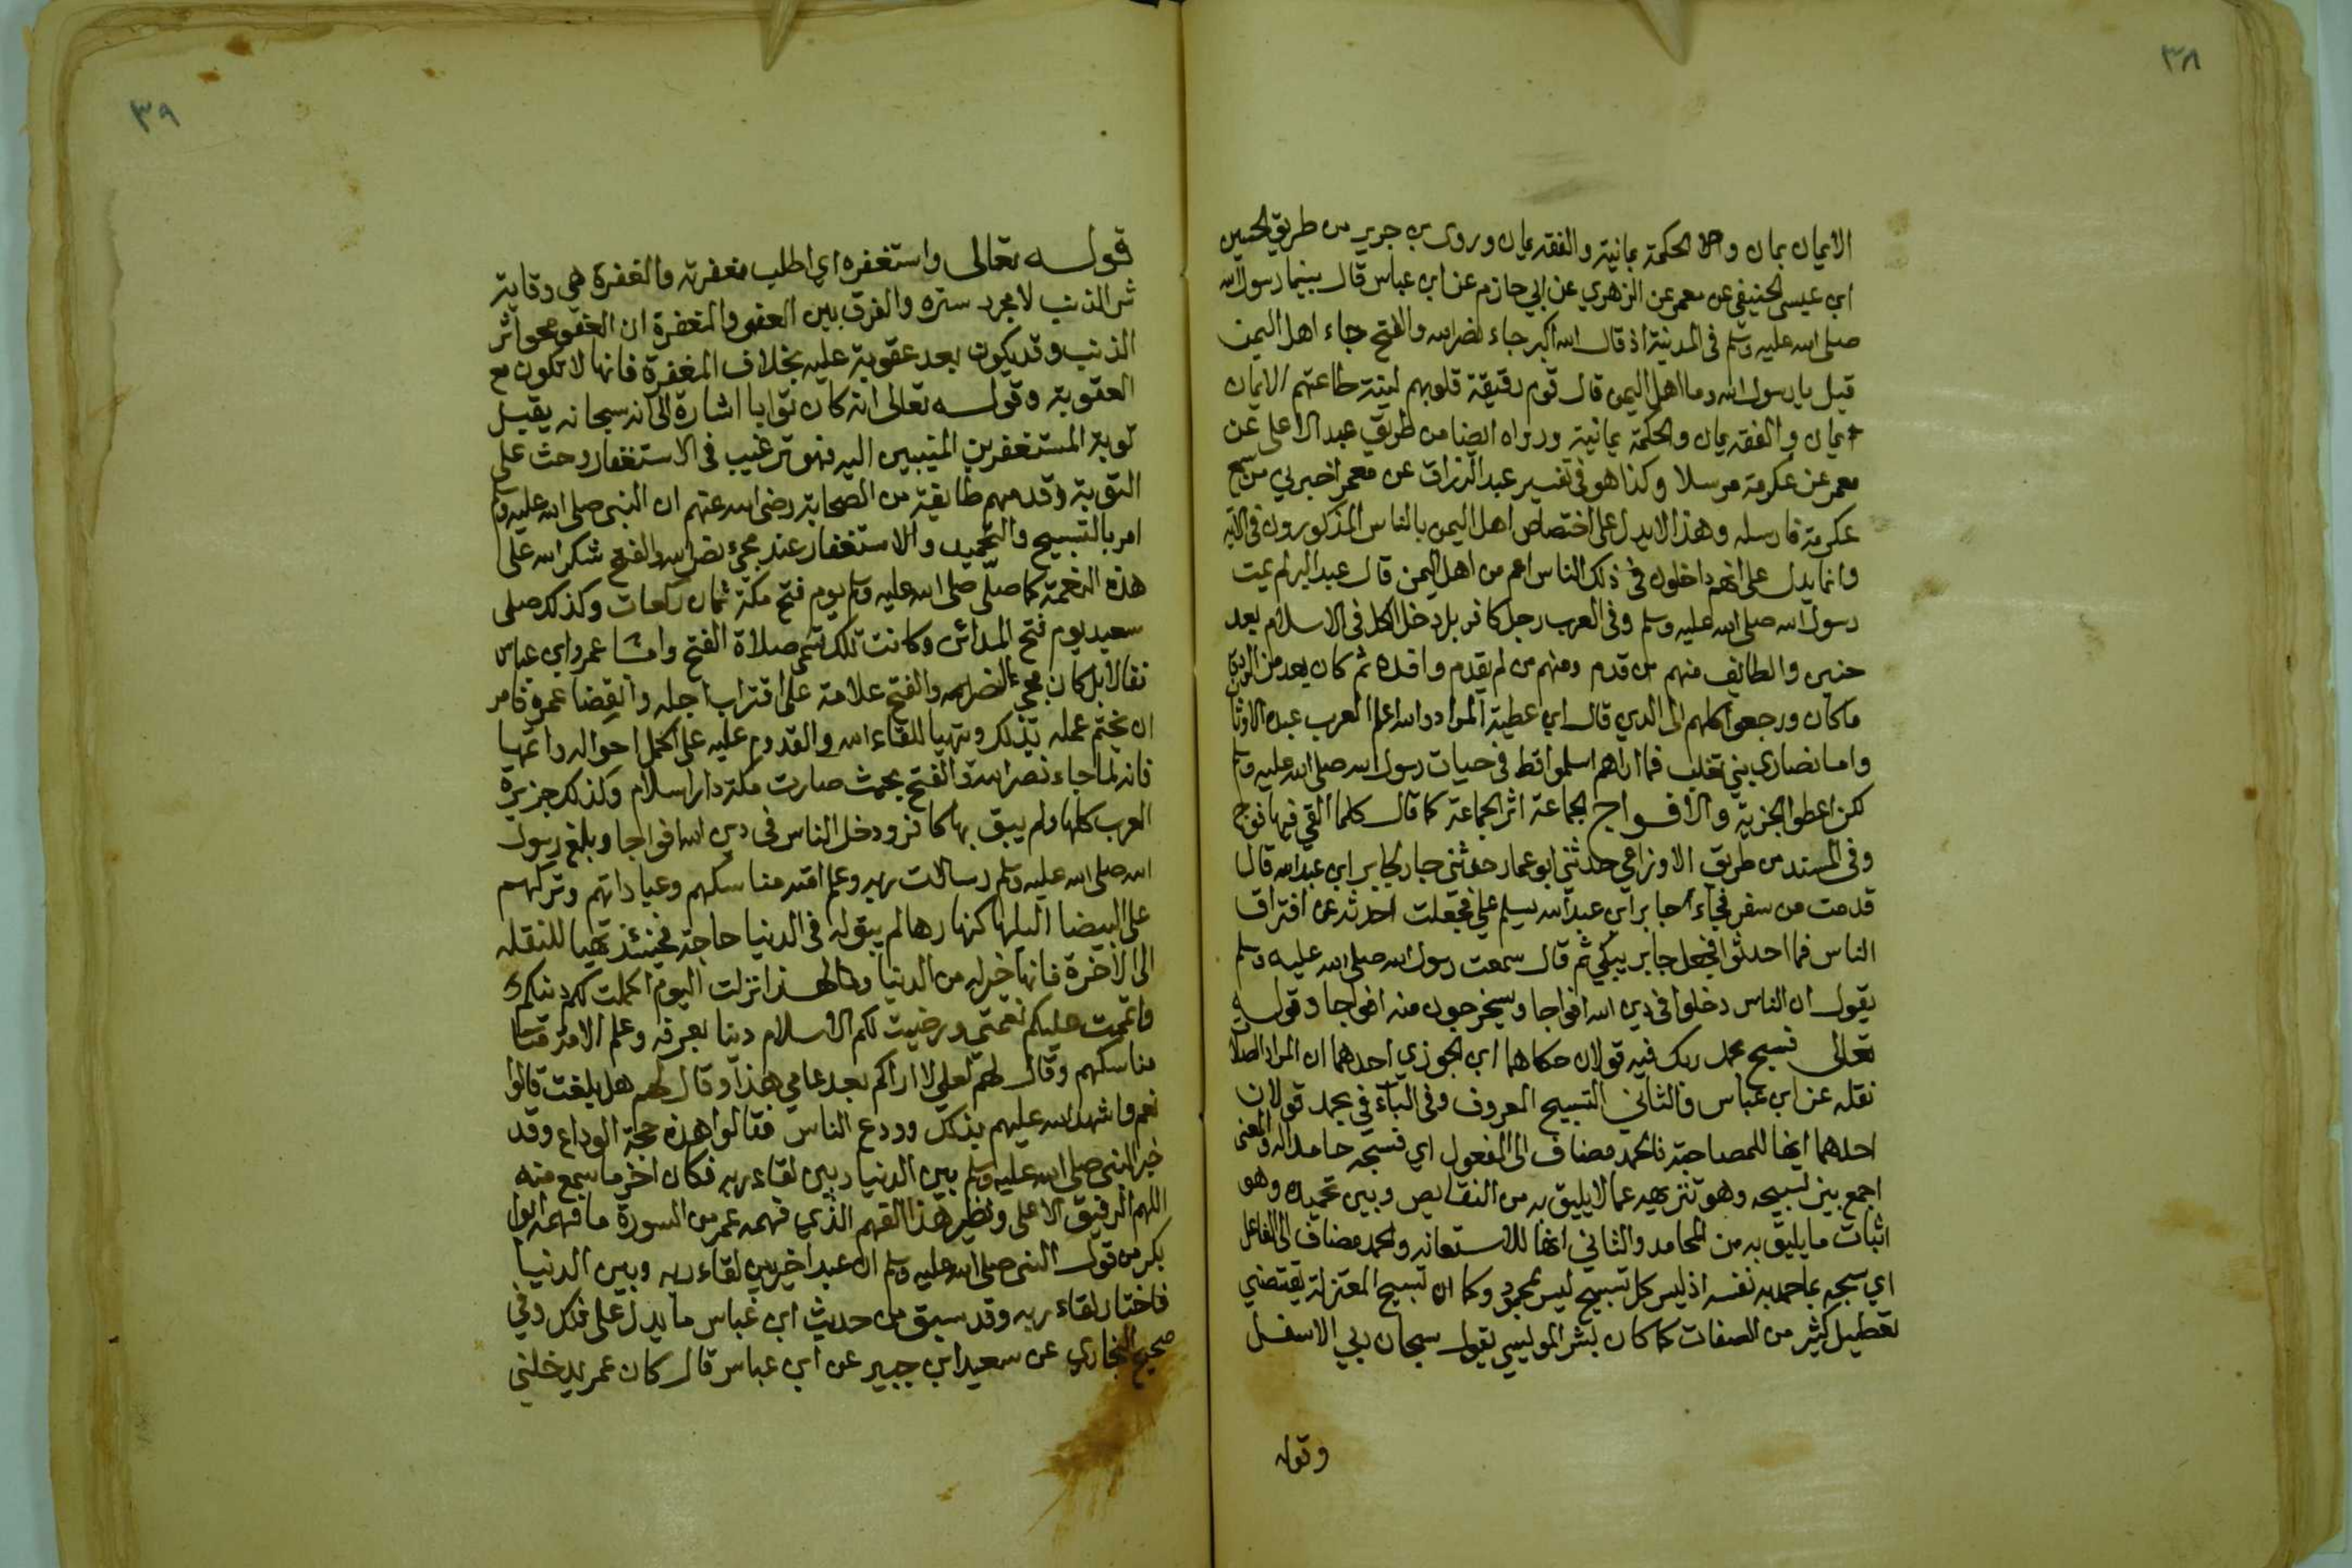 ٣٨
الايمان يمان والحكمة يمانية والفقه يمان وروى بن جرير من طريق الحسين
ابن عيسى الحنيفي عن معمر عن الزهري عن ابي حازم عن ابن عباس قال بينما رسول الله
صلى الله عليه وسلم في المدينة اذ قال الله اكبر جاء نصر الله والفتح جاء اهل اليمن
قيل يا رسول الله وما اهل اليمن قال قوم رقيقة قلوبهم لينة طاعتهم الايمان
يمان والفقه يمان والحكمة يمانية ورواه ايضا من طريق عبد الاعلى عن
معمر عن عكرمة مرسلا وكذا هو في تفسير عبد الرزاق عن معمر اخبرني من سمع
عكرمة فارسله وهذا لا يدل على اختصاص اهل اليمن بالناس المذكورون في الآية
وانما يدل على انهم داخلون في ذلك الناس اعم من اهل اليمن قال عبد البر لم يمت
رسول الله صلى الله عليه وسلم وفي العرب رجل كافر بل دخل الكل في الاسلام بعد
حنين والطائف منهم من قدم ومنهم من لم يقدم وافده ثم كان بعد من
ما كان ورجعوا كلهم الى الدين قال ابن عطية المراد والله اعلم العرب عبدة الاوثان
واما نصارى بني تغلب فما اراهم اسلموا قط في حيات رسول الله صلى الله عليه وسلم
لكن اعطوا الجزية والافواج الجماعة اثر الجماعة كما قال كلما القي فيها فوج
وفي المسند من طريق الاوزاعي حدثني ابو عمار حدثني جار لجابر ابن عبد الله قال
قدمت من سفر فجاء جابر ابن عبد الله يسلم علي فجعلت احدثه عن افتراق
الناس فما احدثوا فجعل جابر يبكي ثم قال سمعت رسول الله صلى الله عليه وسلم
يقول ان الناس دخلوا في دين الله افواجا وسيخرجون منه افواجا وقوله
تعالى فسبح بحمد ربك فيه قولان حكاهما ابن الجوزي احدهما ان المراد الصلاة
نقله عن ابن عباس والثاني التسبيح المعروف وفي الباء في بحمد قولان
احدهما انها للمصاحبة فالحمد مضاف الى المفعول اي فسبحه حامدا له والمعنى
اجمع بين تسبيحه وهو تنزيهه عما لا يليق به من النقايص وبين تحميده وهو
اثبات ما يليق به من المحامد والثاني انها للاستعانه والحمد مضاف الى الفاعل
اي سبحه بما حمد به نفسه اذ ليس كل تسبيح ليس بمحمود وكما ان تسبيح المعتزلة يقتضي
تعطيل كثير من الصفات كما كان بشر المريسي يقول سبحان ربي الاسفل
وقوله
٣٩
قوله تعالى واستغفره اي اطلب مغفرته والمغفرة هي وقاية
شر الذنب لا مجرد ستره والفرق بين العفو والمغفرة ان العفو محو اثر
الذنب وقد يكون بعد عقوبة عليه بخلاف المغفرة فانها لا تكون مع
العقوبة وقوله تعالى انه كان توابا اشارة الى انه سبحانه يقبل
توبة المستغفرين المنيبين اليه فهو ترغيب في الاستغفار وحث على
التوبة وقد فهم طايفة من الصحابة رضي الله عنهم ان النبي صلى الله عليه وسلم
امر بالتسبيح والتحميد والاستغفار عند مجيء نصر الله والفتح شكر الله على
هذه النعمة كما صلى صلى الله عليه وسلم يوم فتح مكة ثمان ركعات وكذلك صلى
سعيد يوم فتح المدائن وكانت تلك تسمى صلاة الفتح واما عمر وابن عباس
فقالا بل كان مجيء النصر والفتح علامة على اقتراب اجله وانقضا عمره فامر
ان يختم عمله بذلك ويتهيا للقاء الله والقدوم عليه على اكمل احواله واتمها
فانه لما جاء نصر الله والفتح بحيث صارت مكة دار اسلام وكذلك جزيرة
العرب كلها ولم يبق بها كافر ودخل الناس في دين الله افواجا وبلغ رسول
الله صلى الله عليه وسلم رسالات ربه وعلم امته مناسكهم وعباداتهم وتركهم
على البيضا ليلها كنهارها لم يبق له في الدنيا حاجة فحينئذ تهيا للنقله
الى الآخرة فانها خير له من الدنيا ولهذا انزلت اليوم اكملت لكم دينكم
واتممت عليكم نعمتي ورضيت لكم الاسلام دينا بعرفه وعلم الامة
مناسكهم وقال لهم لعلي لا اراكم بعد عامي هذا وقال لهم هل بلغت قالوا
نعم واشهد الله عليهم بذلك وودع الناس فقالوا هذه حجة الوداع وقد
خير النبي صلى الله عليه وسلم بين الدنيا وبين لقاء ربه فكان اخر ما سمع منه
اللهم الرفيق الاعلى ونظير هذا الفهم الذي فهمه عمر من السورة ما فهمه ابوا
بكر من قول النبي صلى الله عليه وسلم ان عبدا خير بين لقاء ربه وبين الدنيا
فاختار لقاء ربه وقد سبق من حديث ابن عباس ما يدل على ذلك وفي
صحيح البخاري عن سعيد ابن جبير عن ابن عباس قال كان عمر يدخلني